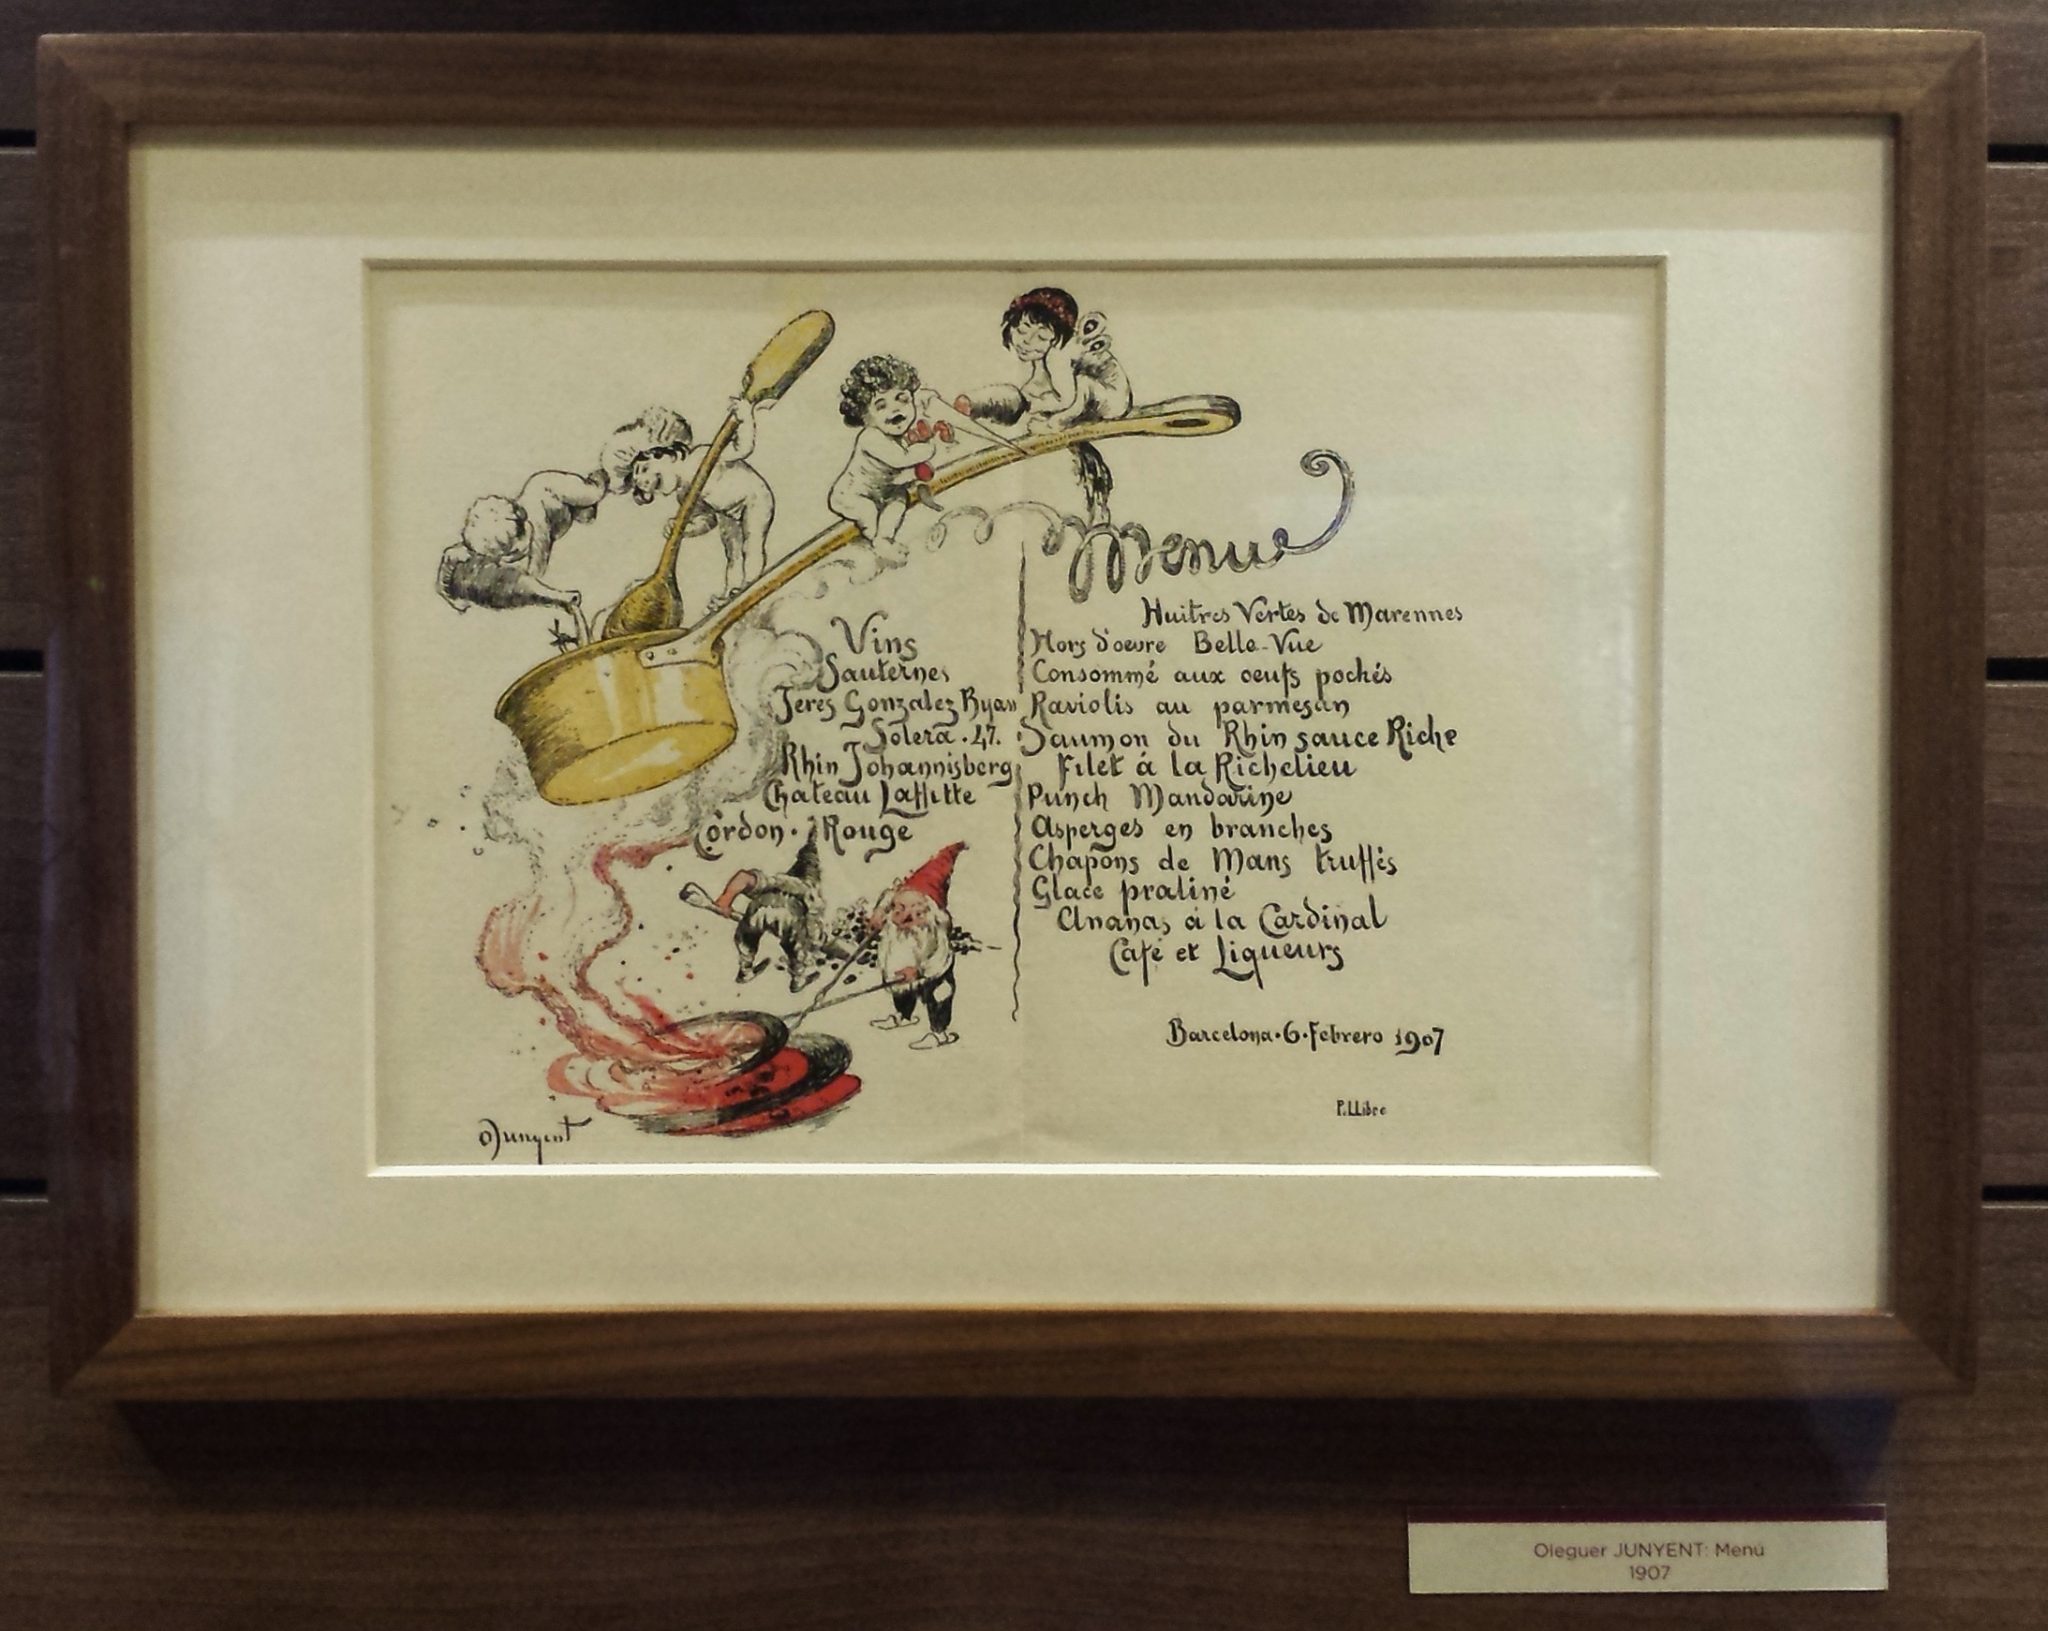 Menu
Vins
Sauternes
Jerez Gonzalez Byass
Solera. 47.
Rhin Johannisberg
Chateau Laffitte
Cordon. Rouge
Huitres Vertes de Marennes
Hors d'oeuvre Belle-Vue
Consommé aux oeufs pochés
Raviolis au parmesan
Saumon du Rhin sauce Riche
Filet á la Richelieu
Punch Mandarine
Asperges en branches
Chapons de Mans truffés
Glace praliné
Ananas á la Cardinal
Café et Liqueurs
Barcelona. 6. Febrero 1907
P. LLibre
O Junyent
Oleguer JUNYENT: Menú
1907